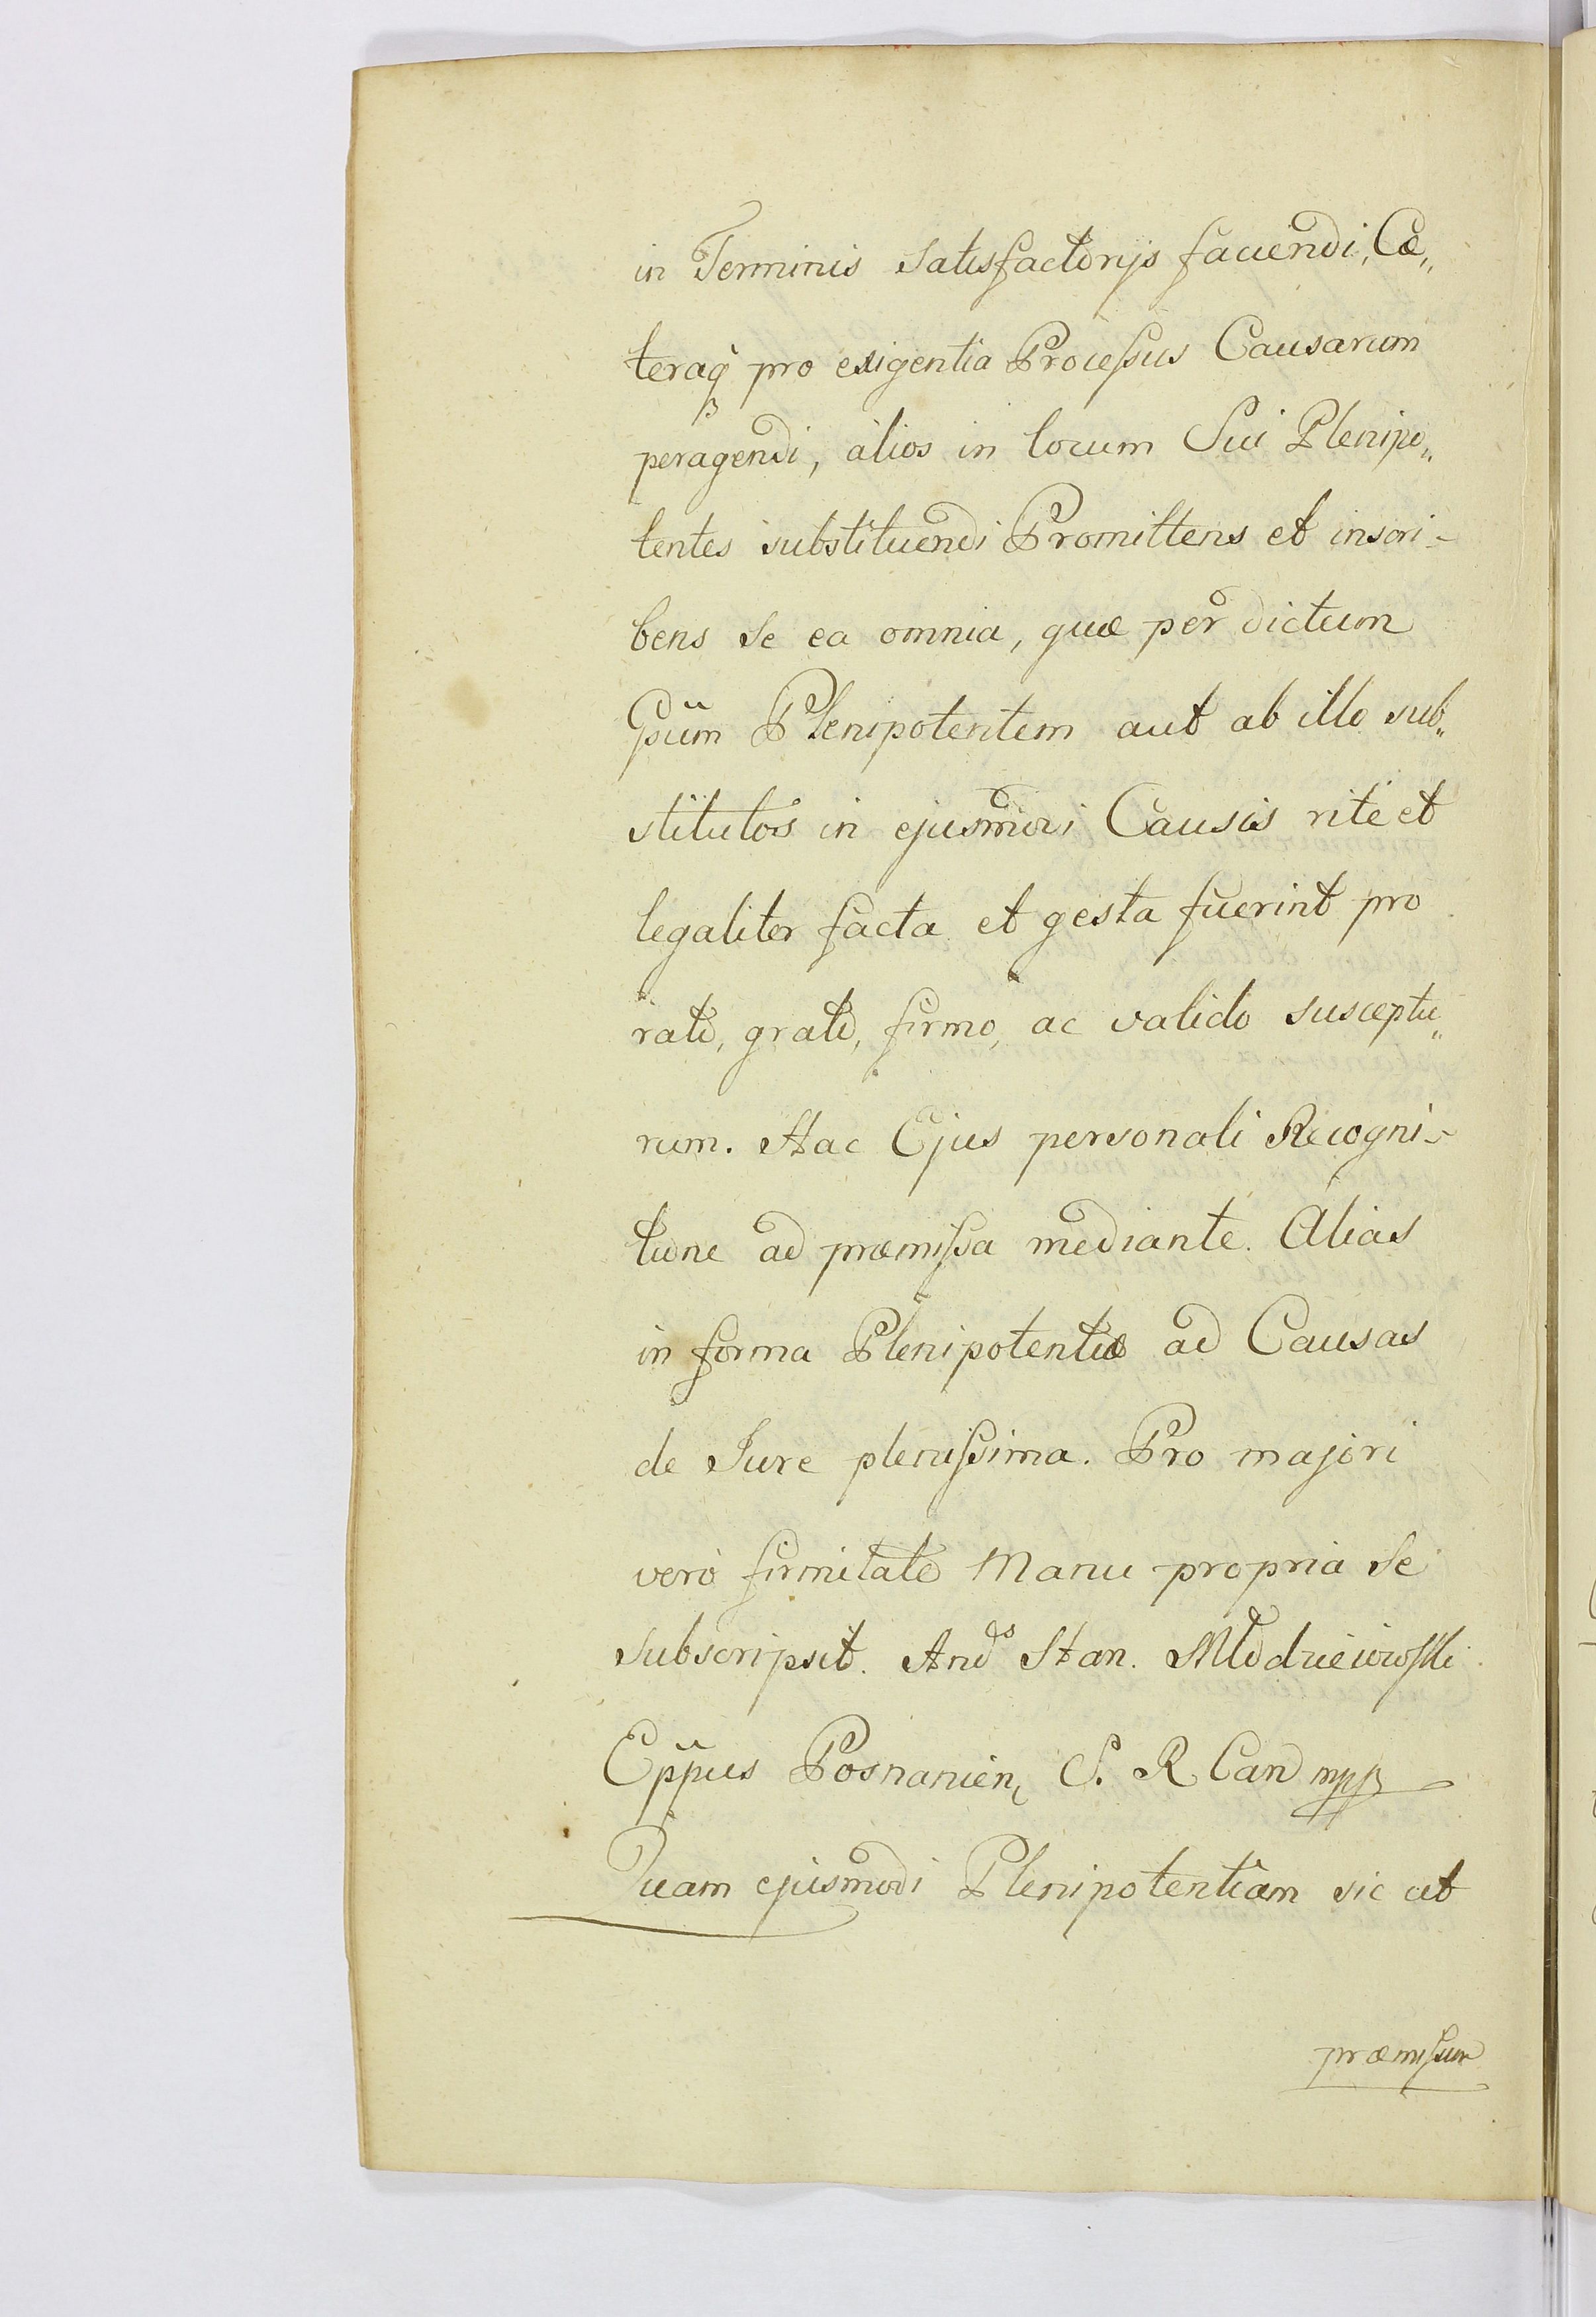 in Terminis Satisfactorijs faciendi, Cæ„
teraq̀ pro exigentia Processus Causarum
peragendi, àlios in locum Sui Plenipo„
tentes substituendi Promittens et inscri-
bens se ea omnia, quæ per dictum
Gsum̃ Plenipotentem aut ab illo sub„
stitutos in ejusmodi Causis ritè et
legaliter facta et gesta fuerint pro
rato, grato, firmo, ac valido susceptu„
rum. Hac Ejus personali Recogni-
tione ad præmissa mediante. Alias
in forma Plenipotentiæ ad Causas
de Jure plenissima. Pro majori
verò firmitate Manu propria Se
subscripsit. Andˢ Stan. Młodzieiowski
Epp̃us Posnanien, S. R. Can mpp
Quam ejusmodi Plenipotentiam sic ut
præmissum